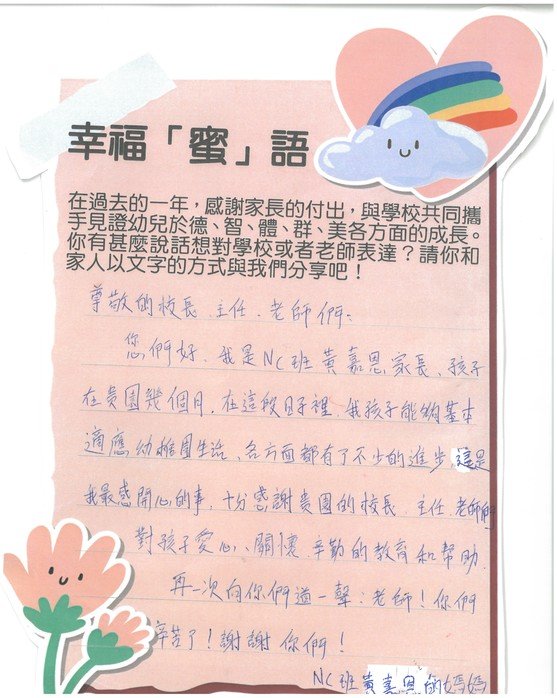 幸福「蜜」語
在過去的一年，感謝家長的付出，與學校共同攜
手見證幼兒於德、智、體、群、美各方面的成長。
你有甚麼說話想對學校或者老師表達？請你和
家人以文字的方式與我們分享吧！
尊敬的校長、主任、老師們：
您們好、我是NC班黃嘉恩家長、孩子
在貴園幾個月，在這段日子裡，我孩子能夠基本
適應幼稚園生活、各方面都有了不少的進步，這是
我最感開心的事，十分感謝貴園的校長、主任、老師們
對孩子愛心、關懷、辛勤的教育和幫助，
再一次向你們道一聲：老師！你們
辛苦了！謝謝你們！
NC班黃嘉恩的媽媽